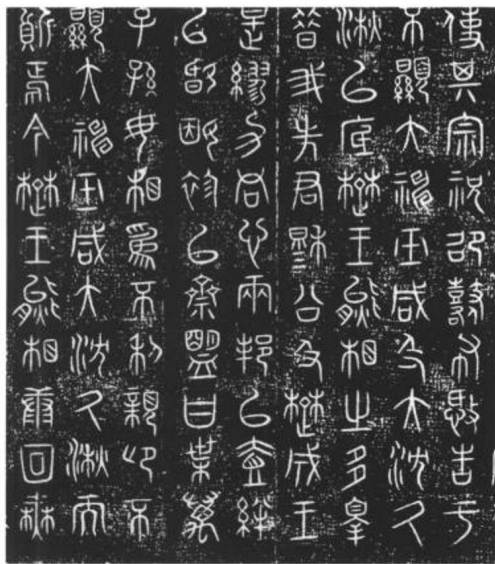 使其宗祝邵鼛布憼告于
不顯大神巫咸及大沈久
湫以底楚王熊相之多辠
昔我先君穆公及楚成王
是繆力同心兩邦以壹絆
以婚姻袗以齋盟曰枼萬
子孫毋相為不利親卬不
顯大神巫咸大沈久湫而
質焉今楚王熊相康回無